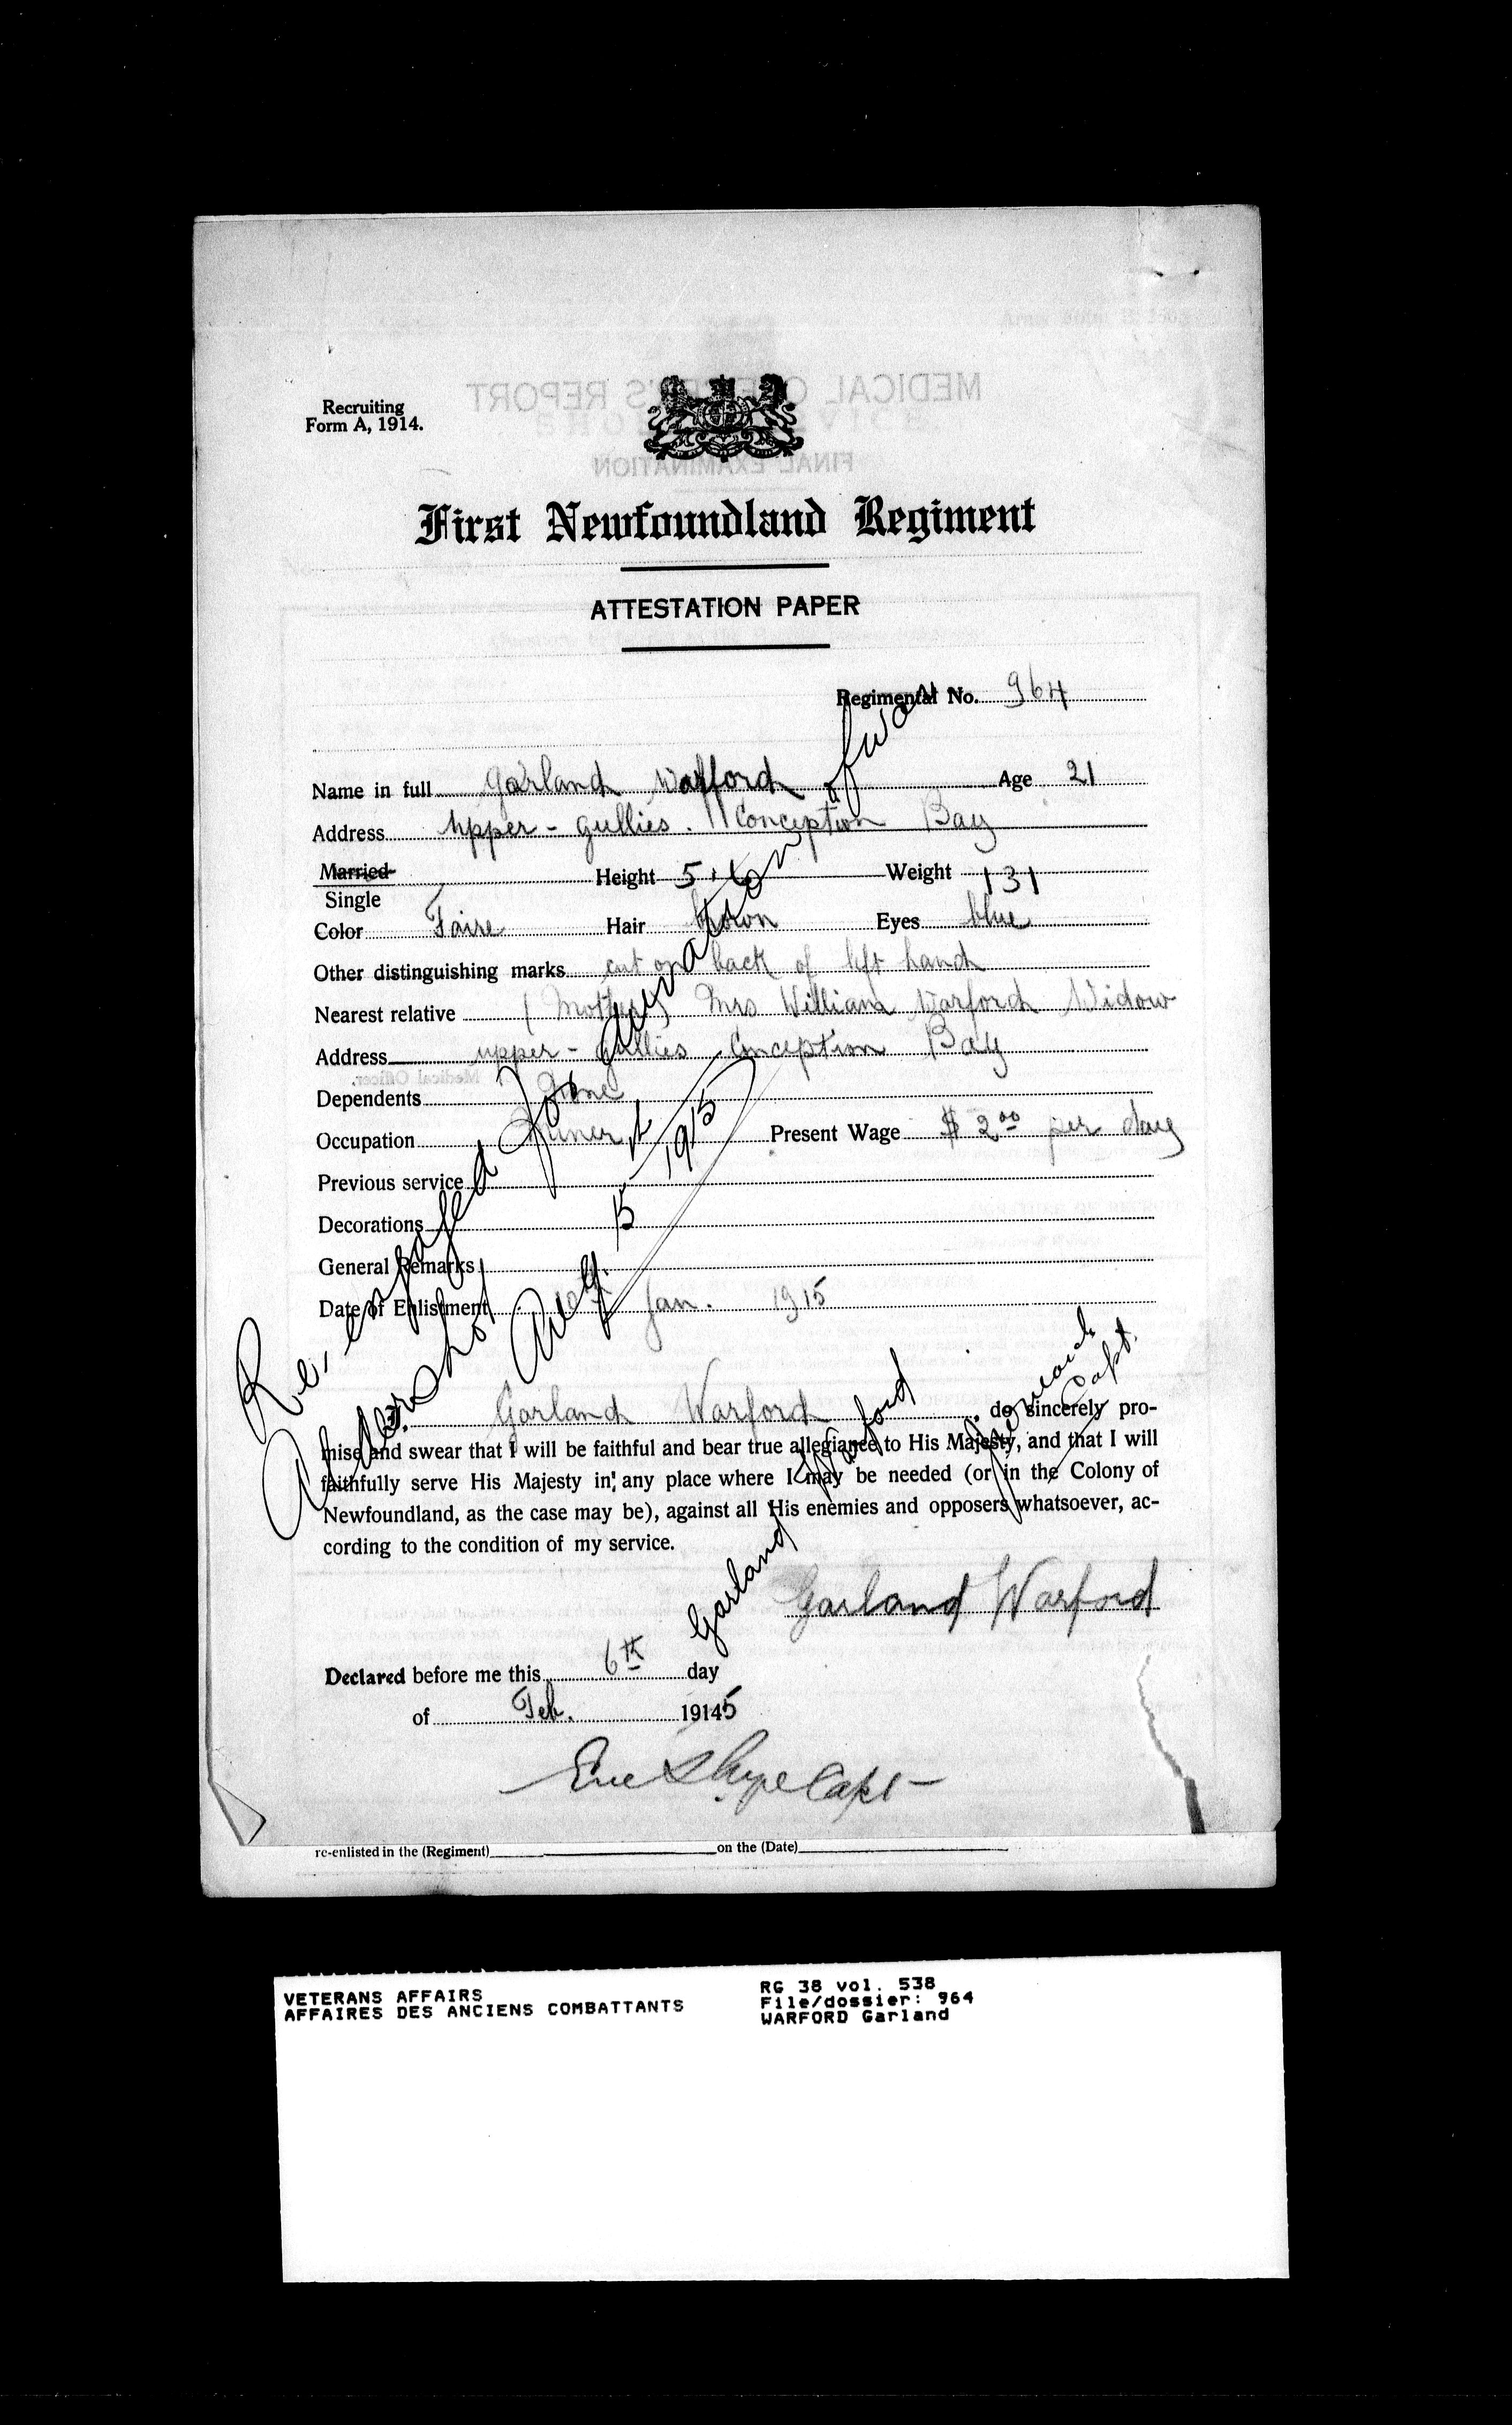 Recruiting
Form A, 1914.
MEDICAL OFFICER'S REPORT
FINAL EXAMINATION
First Newfoundland Regiment
ATTESTATION PAPER
Regimental No. 964
Name in full Garland Warford Age 21
Address Upper - Gullies. Conception Bay
Married
Single
Height 5 Weight 131
Color Faire Hair brown Eyes blue
Other distinguishing marks cut on back of left hand
Nearest relative (Mother) Mrs William Warford Widow
Address upper - Gullies Conception Bay
Dependents None
Occupation Miner Present Wage $ 2.00 per day
Previous service
Decorations
General Remarks
Date of Enlistment Jan. 1915
Re, engaged for duration of war
Aldershot Aug. 15 1915
Garland Warford
Capt.
I, Garland Warford, do sincerely pro-
mise and swear that I will be faithful and bear true allegiance to His Majesty, and that I will
faithfully serve His Majesty in any place where I may be needed (or in the Colony of
Newfoundland, as the case may be), against all His enemies and opposers whatsoever, ac-
cording to the condition of my service.
Garland Warford
Declared before me this 6th day
of Feb. 19145
Capt
re-enlisted in the (Regiment) on the (Date)
VETERANS AFFAIRS
AFFAIRES DES ANCIENS COMBATTANTS
RG 38 vol. 538
File/dossier: 964
WARFORD Garland